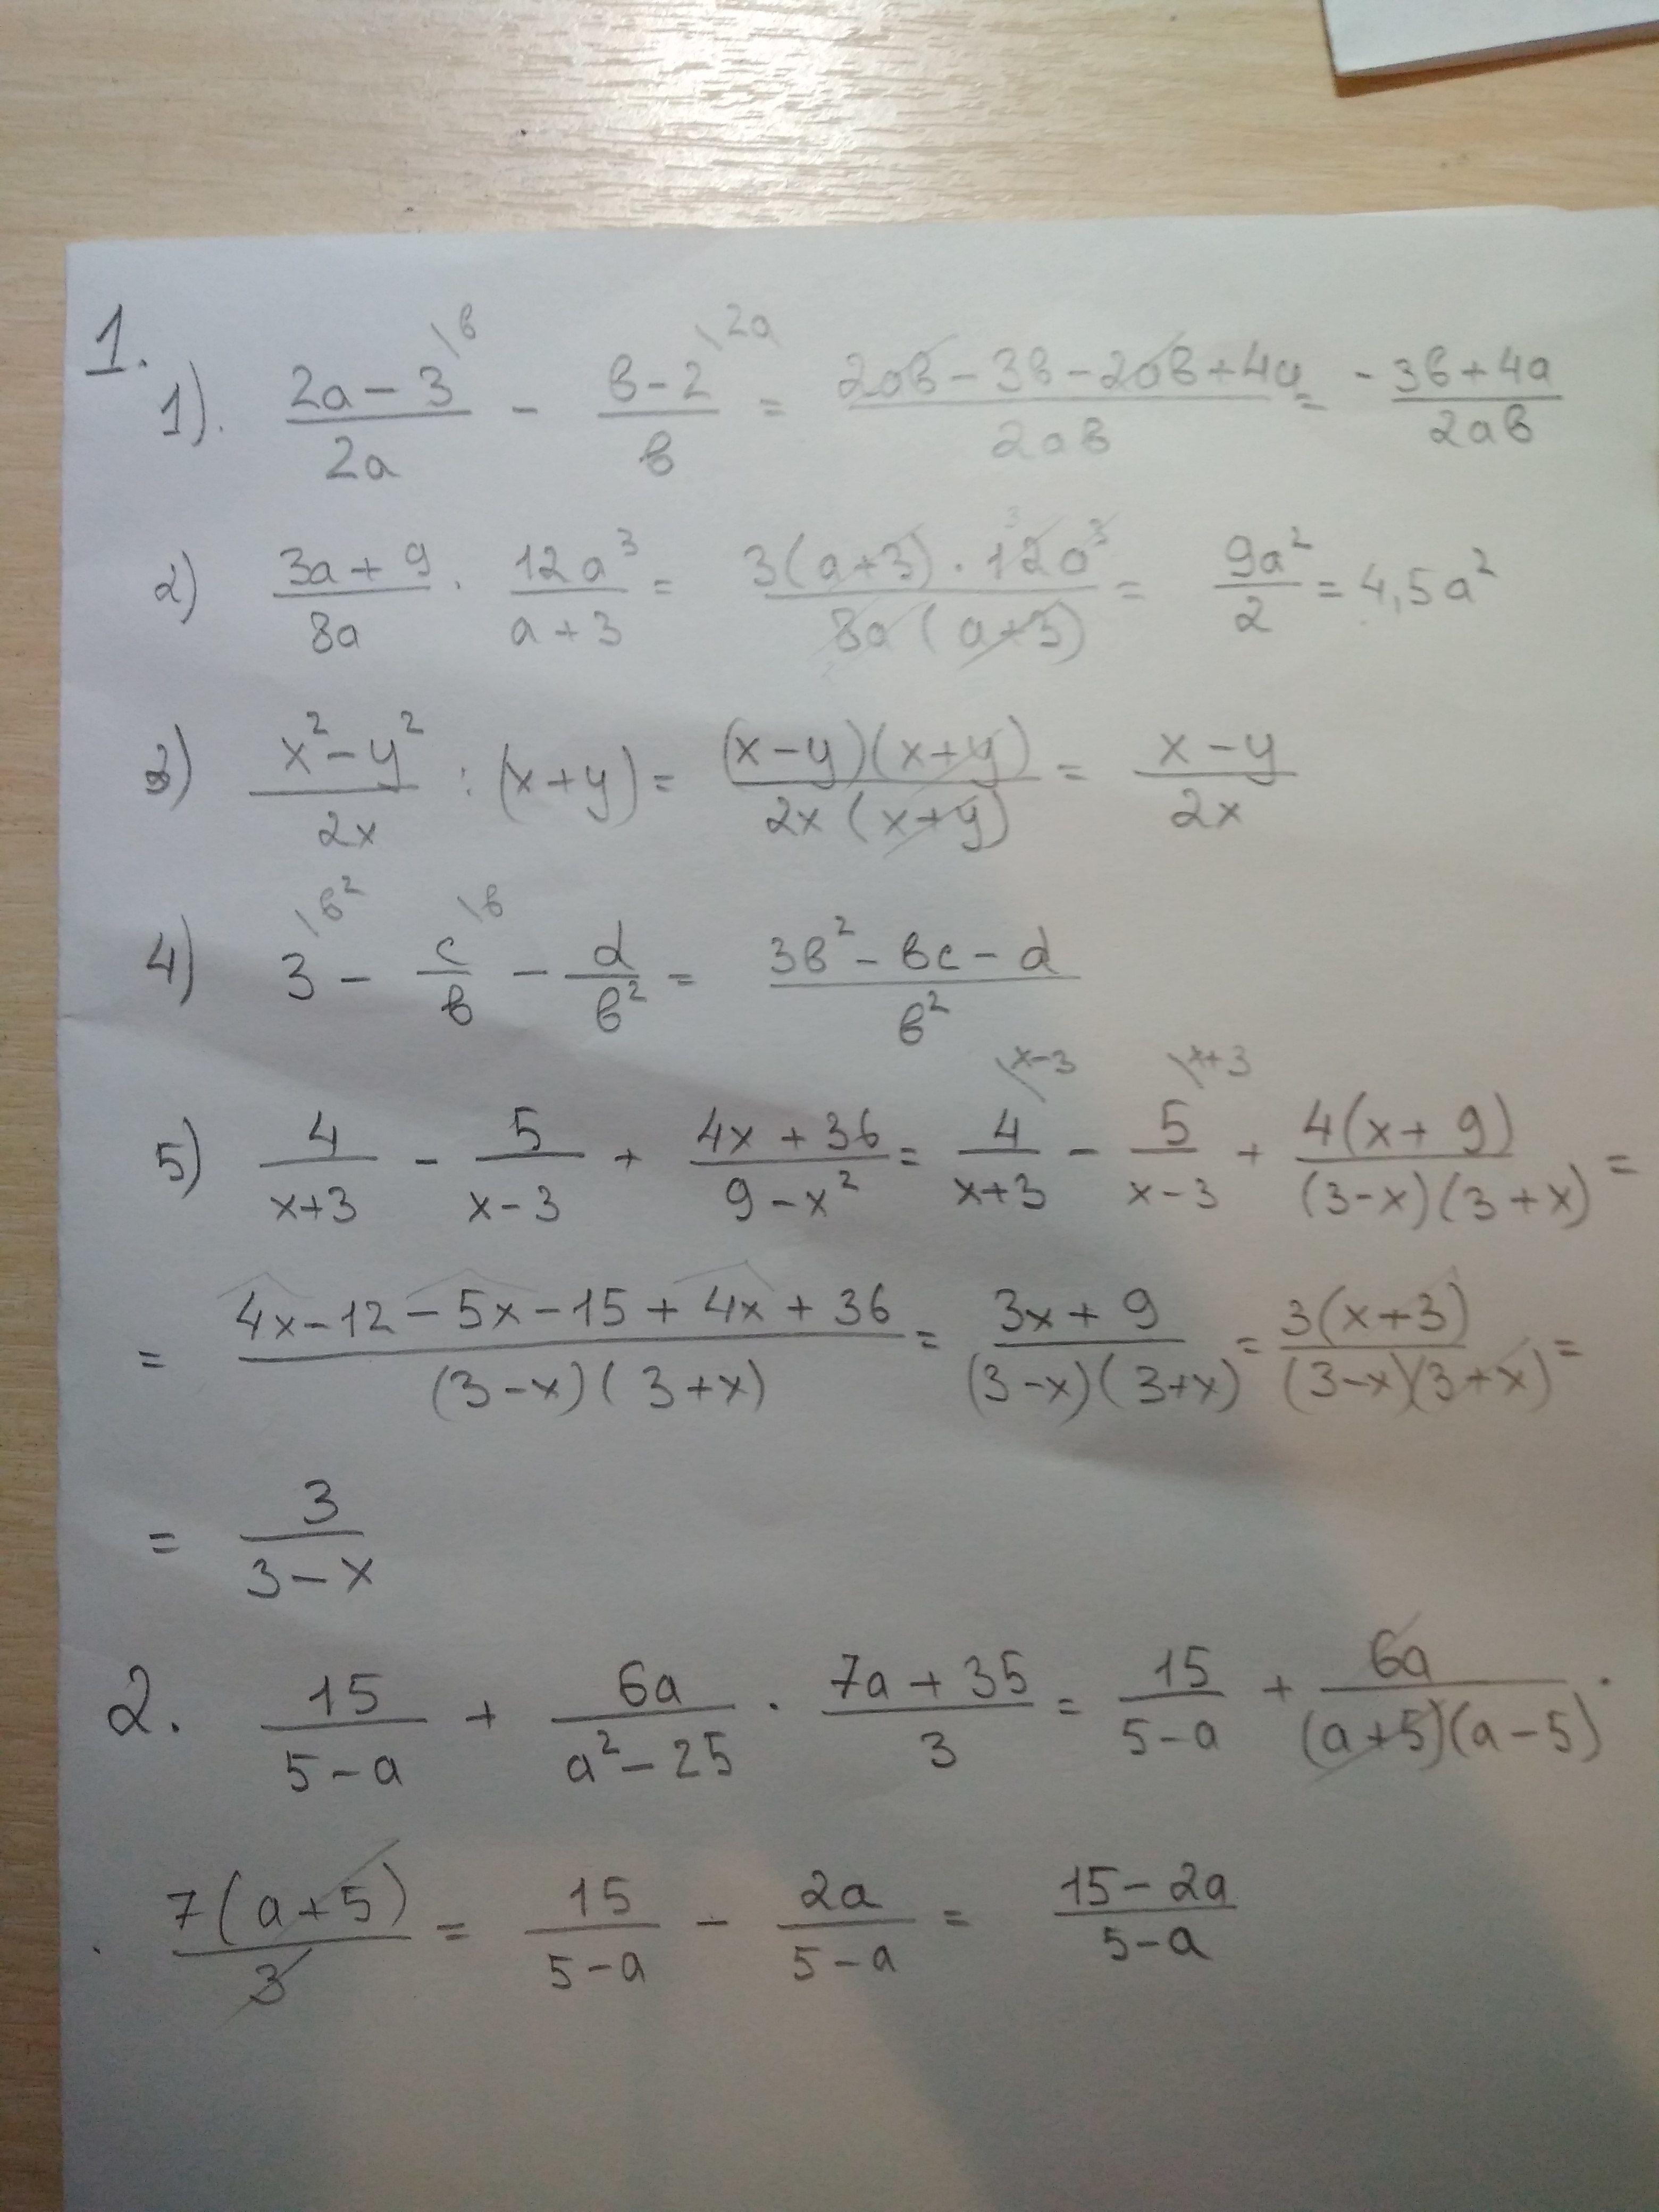 1.
1). (2a-3)/2a \в - (в-2)/в \2a = (2aв-3в-2aв+4a)/2aв = (-3в+4a)/2aв
2) (3a+9)/8a · 12a³/(a+3) = 3(a+3)·12a³ 3/8a(a+3) = 9a²/2 = 4,5a²
3) (x²-y²)/2x : (x+y) = (x-y)(x+y)/2x(x+y) = (x-y)/2x
4) 3 \в² - c/в \в - d/в² = (3в²-вc-d)/в²
5) 4/(x+3) - 5/(x-3) + (4x+36)/(9-x²) = 4/(x+3) \x-3 - 5/(x-3) \x+3 + 4(x+9)/(3-x)(3+x) =
= (4x-12-5x-15+4x+36)/(3-x)(3+x) = (3x+9)/(3-x)(3+x) = 3(x+3)/(3-x)(3+x) =
= 3/(3-x)
2. 15/(5-a) + 6a/(a²-25) · (7a+35)/3 = 15/(5-a) + 6a/(a+5)(a-5) ·
· 7(a+5)/3 = 15/(5-a) - 2a/(5-a) = (15-2a)/(5-a)